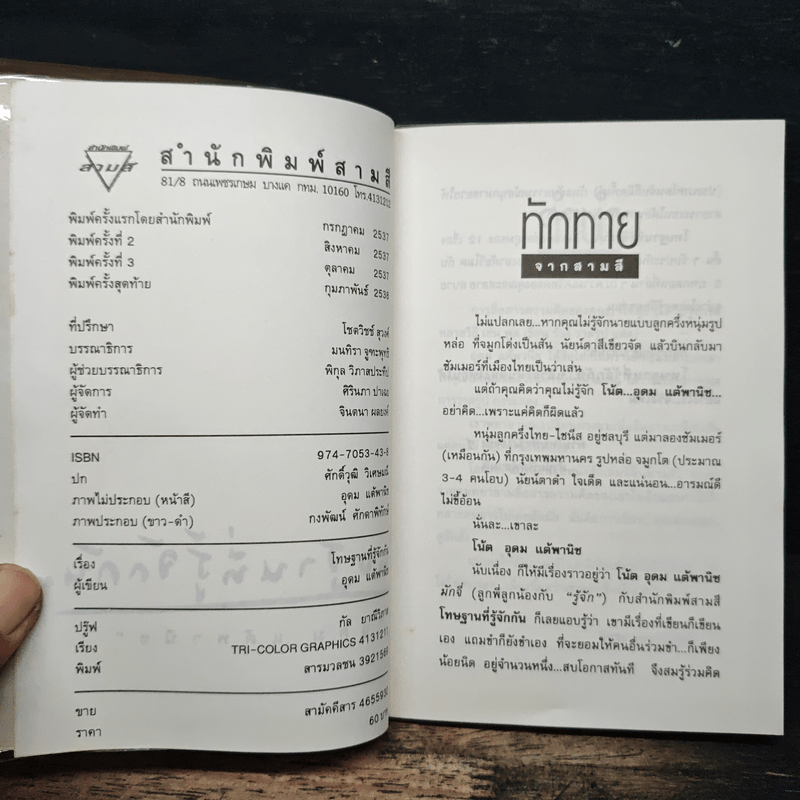 สำนักพิมพ์
สามสี
สำนักพิมพ์สามสี
81/8 ถนนเพชรเกษม บางแค กทม. 10160 โทร.4131212
พิมพ์ครั้งแรกโดยสำนักพิมพ์ กรกฎาคม 2537
พิมพ์ครั้งที่ 2 สิงหาคม 2537
พิมพ์ครั้งที่ 3 ตุลาคม 2537
พิมพ์ครั้งสุดท้าย กุมภาพันธ์ 2538
ที่ปรึกษา โชตวิชช์ สุวงศ์
บรรณาธิการ มนทิรา จูฑะพุทธิ
ผู้ช่วยบรรณาธิการ พิกุล วิภาสประทีป
ผู้จัดการ ศิรินภา
ผู้จัดทำ จินตนา ผลยงค์
ISBN 974-7053-43-8
ปก ศักดิ์วุฒิ วิเศษมณี
ภาพไม่ประกอบ (หน้าสี) อุดม แต้พานิช
ภาพประกอบ (ขาว-ดำ) กงพัฒน์ ศักดาพิทักษ์
เรื่อง โทษฐานที่รู้จักกัน
ผู้เขียน อุดม แต้พานิช
ปรู๊ฟ กัล ยาณีวิภาต
เรียง TRI-COLOR GRAPHICS 4131211
พิมพ์ สารมวลชน 3921569
ขาย สามัคคีสาร 4655930
ราคา 60 บาท
ทักทาย
จากสามสี
ไม่แปลกเลย...หากคุณไม่รู้จักนายแบบลูกครึ่งหนุ่มรูป
หล่อ ที่จมูกโด่งเป็นสัน นัยน์ตาสีเขียวจัด แล้วบินกลับมา
ซัมเมอร์ที่เมืองไทยเป็นว่าเล่น
แต่ถ้าคุณคิดว่าคุณไม่รู้จัก โน้ต...อุดม แต้พานิช...
อย่าคิด...เพราะแค่คิดก็ผิดแล้ว
หนุ่มลูกครึ่งไทย-ไชนีส อยู่ชลบุรี แต่มาลองซัมเมอร์
(เหมือนกัน) ที่กรุงเทพมหานคร รูปหล่อ จมูกโต (ประมาณ
3-4 คนโอบ) นัยน์ตาดำ ใจเด็ด และแน่นอน...อารมณ์ดี
ไม่ขี้อ้อน
นั่นละ...เขาละ
โน้ต อุดม แต้พานิช
นับเนื่อง ก็ให้มีเรื่องราวอยู่ว่า โน้ต อุดม แต้พานิช
มักจี่ (ลูกพี่ลูกน้องกับ “รู้จัก”) กับสำนักพิมพ์สามสี
โทษฐานที่รู้จักกัน ก็เลยแอบรู้ว่า เขามีเรื่องที่เขียนก็เขียน
เอง แถมขำก็ยังขำเอง ที่จะยอมให้คนอื่นร่วมขำ...ก็เพียง
น้อยนิด อยู่จำนวนหนึ่ง...สบโอกาสทันที จึงสมรู้ร่วมคิด